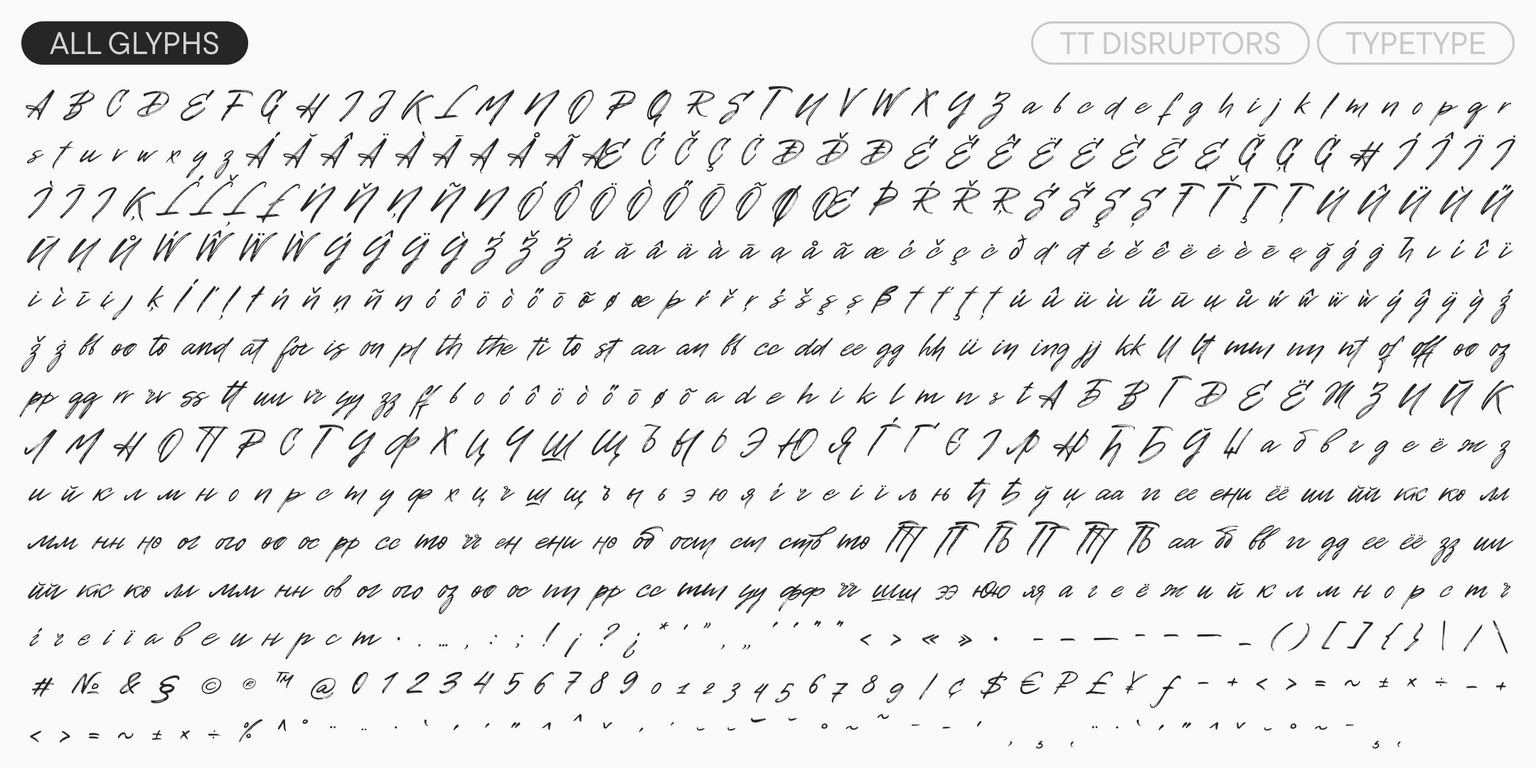 ALL GLYPHS TT DISRUPTORS TYPETYPE
A B C D E F G H I J K L M N O P Q R S T U V W X Y Z a b c d e f g h i j k l m n o p q r
s t u v w x y z Á Ă Â Ä À Ā Ą Å Ã Æ Ć Č Ç Ċ Ð Ď Đ É Ě Ê Ë Ė È Ē Ę Ğ Ģ Ġ Ħ Í Î Ï İ
Ì Ī Į Ķ Ĺ Ľ Ļ Ł Ń Ň Ņ Ñ Ŋ Ó Ô Ö Ò Ő Ō Õ Ø Œ Þ Ŕ Ř Ŗ Ś Š Ş Ș Ŧ Ť Ţ Ț Ú Û Ü Ù Ű
Ū Ų Ů Ẃ Ŵ Ẅ Ẁ Ý Ŷ Ÿ Ỳ Ź Ž Ż á ă â ä à ā ą å ã æ ć č ç ċ ð ď đ é ě ê ë ė è ē ę ğ ģ ġ ħ ı í î ï
i ì ī į j ķ ĺ ľ ļ ł ń ň ņ ñ ŋ ó ô ö ò ő ō õ ø œ þ ŕ ř ŗ ś š ş ș ß ŧ ť ţ ț ú û ü ù ű ū ų ů ẃ ŵ ẅ ẁ ý ŷ ÿ ỳ ź
ž ż bb oo to and at for is on pl th the ti to st aa an bb cc dd ee gg hh ii in ing jj kk ll lt mm nn nt of off oo oz
pp qq rr rr ss tt uu vr yy zz ff b o ó ô ö ò ő ō ø õ a d e h i k l m n s t А Б В Г Д Е Ё Ж З И Й К
Л М Н О П Р С Т У Ф Х Ц Ч Ш Щ Ъ Ы Ь Э Ю Я Ѓ Ґ Є І Љ Њ Ћ Ђ Ў Џ а б в г д е ё ж з
и й к л м н о п р с т у ф х ц ч ш щ ъ ы ь э ю я ѓ ґ є і ї љ њ ћ ђ ў џ аа гг ее ени ёё ии йй кк ко лл
мм нн но ог ого оо ос рр сс то чг ен ени но об ост ст ств то ПП ПТ ПЬ ТТ ТП ТЬ аа бб вв гг дд ее ёё зз ии
йй кк ко лл мм нн ов ог ого оз оо ос пп рр сс тт уу фф чг шш ээ юю яя а г е ё ж и й к л м н о р с т ч
ѓ ґ є і ї а в е и н р с т · . … , : ; ! ¡ ? ¿ * ' " ‚ „ ‘ ’ “ ” < > « » · - – — - – — _ ( ) [ ] { } | / \
# № & § © ® ™ @ 0 1 2 3 4 5 6 7 8 9 0 1 2 3 4 5 6 7 8 9 / ¢ $ € ₽ £ ¥ ƒ − + < > = ~ ± × ÷ − +
< > = ~ ± × ÷ % ^ °